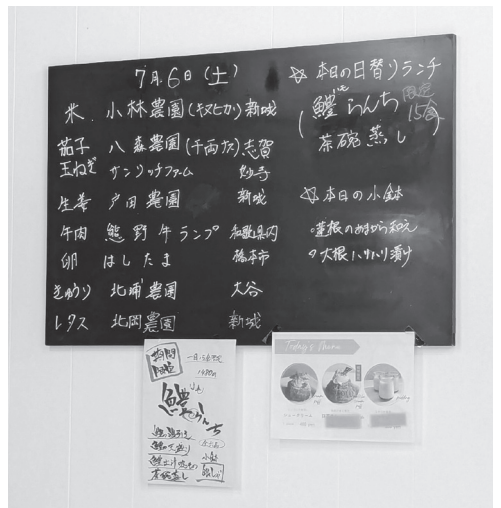 7月6日(土)
米 小林農園(キヌヒカリ)新城
茄子 八森農園(千両ナス)志賀
玉ねぎ サンリッチファーム 妙寺
生姜 戸田農園 新城
牛肉 熊野牛ランプ 和歌山県内
卵 はしたま 橋本市
きゅうり 北浦農園 大谷
レタス 北岡農園 新城
☆本日の日替りランチ
鱧らんち 限定15食
茶碗蒸し
☆本日の小鉢
蓮根のあまから和え
大根ハリハリ漬け
期間限定
一日15食限定
鱧らんち
茶碗蒸し
小鉢
Today's Menu